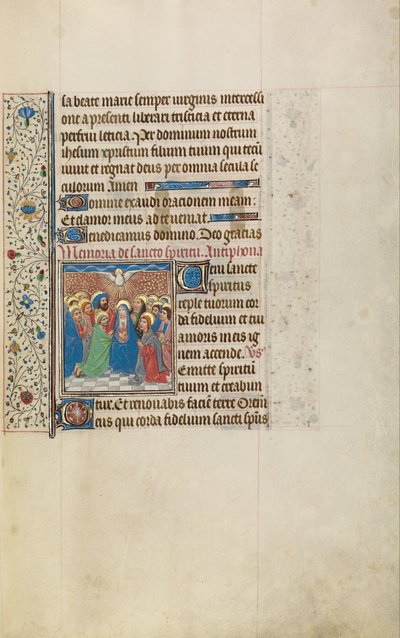 sa beate marie semper virginis intercessi
one a presenti liberari tristicia et eterna
perfrui leticia. Per dominum nostrum
ihesum xpristum filium tuum qui tecū
vivit et regnat deus per omnia secula se
culorum Amen
Domine exaudi orationem meam:
Et clamor meus ad te veniat.
Benedicamus domino. Deo gracias
Memoria de sancto spiritu. Antiphona
Veni sancte
spiritus
reple tuorum cor
da fidelium et tui
amoris in eis ig
nem accende. Vs
Emitte spiritū
tuum et creabun
tur. Et renovabis faciē terre Orem̄
Deus qui corda fidelium sancti spūs